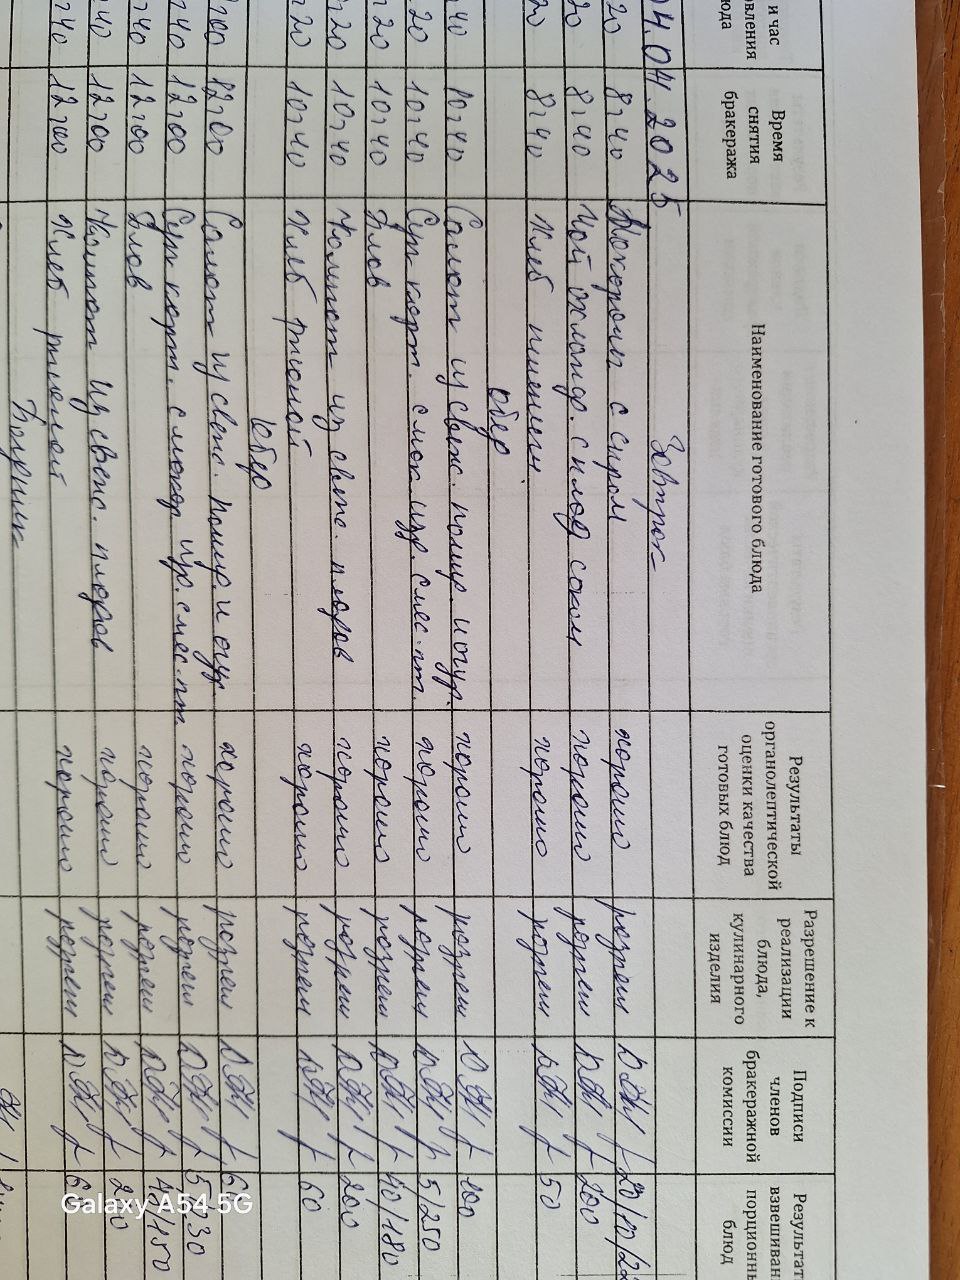 и час
овления
юда
Время
снятия
бракеража
Наименование готового блюда
Результаты
органолептической
оценки качества
готовых блюд
Разрешение к
реализации
блюда,
кулинарного
изделия
Подписи
членов
бракеражной
комиссии
Результат
взвешиван
порционны
блюд
04.04.2025 Завтрак
20 8ч40 Макароны с сыром хорошо разреш
20 8ч40 Чай с плод соком хорошо разреш 200
20 8ч40 Хлеб пшенич хорошо разреш 50
Обед
40 10ч40 Салат из свеж. помид. и огур. хорошо разреш 100
20 10ч40 Суп карт. с мак изд. смес. пт. хорошо разреш 5/250
ч20 10ч40 Плов хорошо разреш 40/180
ч20 10ч40 Компот из свеж. плодов хорошо разреш 200
ч20 10ч40 Хлеб ржаной хорошо разреш 60
Обед
ч00 12ч00 Салат из свеж. помид. и огур. хорошо разреш
ч40 12ч00 Суп карт. с макар изд. смес. пт. хорошо разреш
ч40 12ч00 Плов хорошо разреш
ч40 12ч00 Компот из свеж. плодов хорошо разреш
ч40 12ч00 Хлеб ржаной хорошо разреш
Galaxy A54 5G